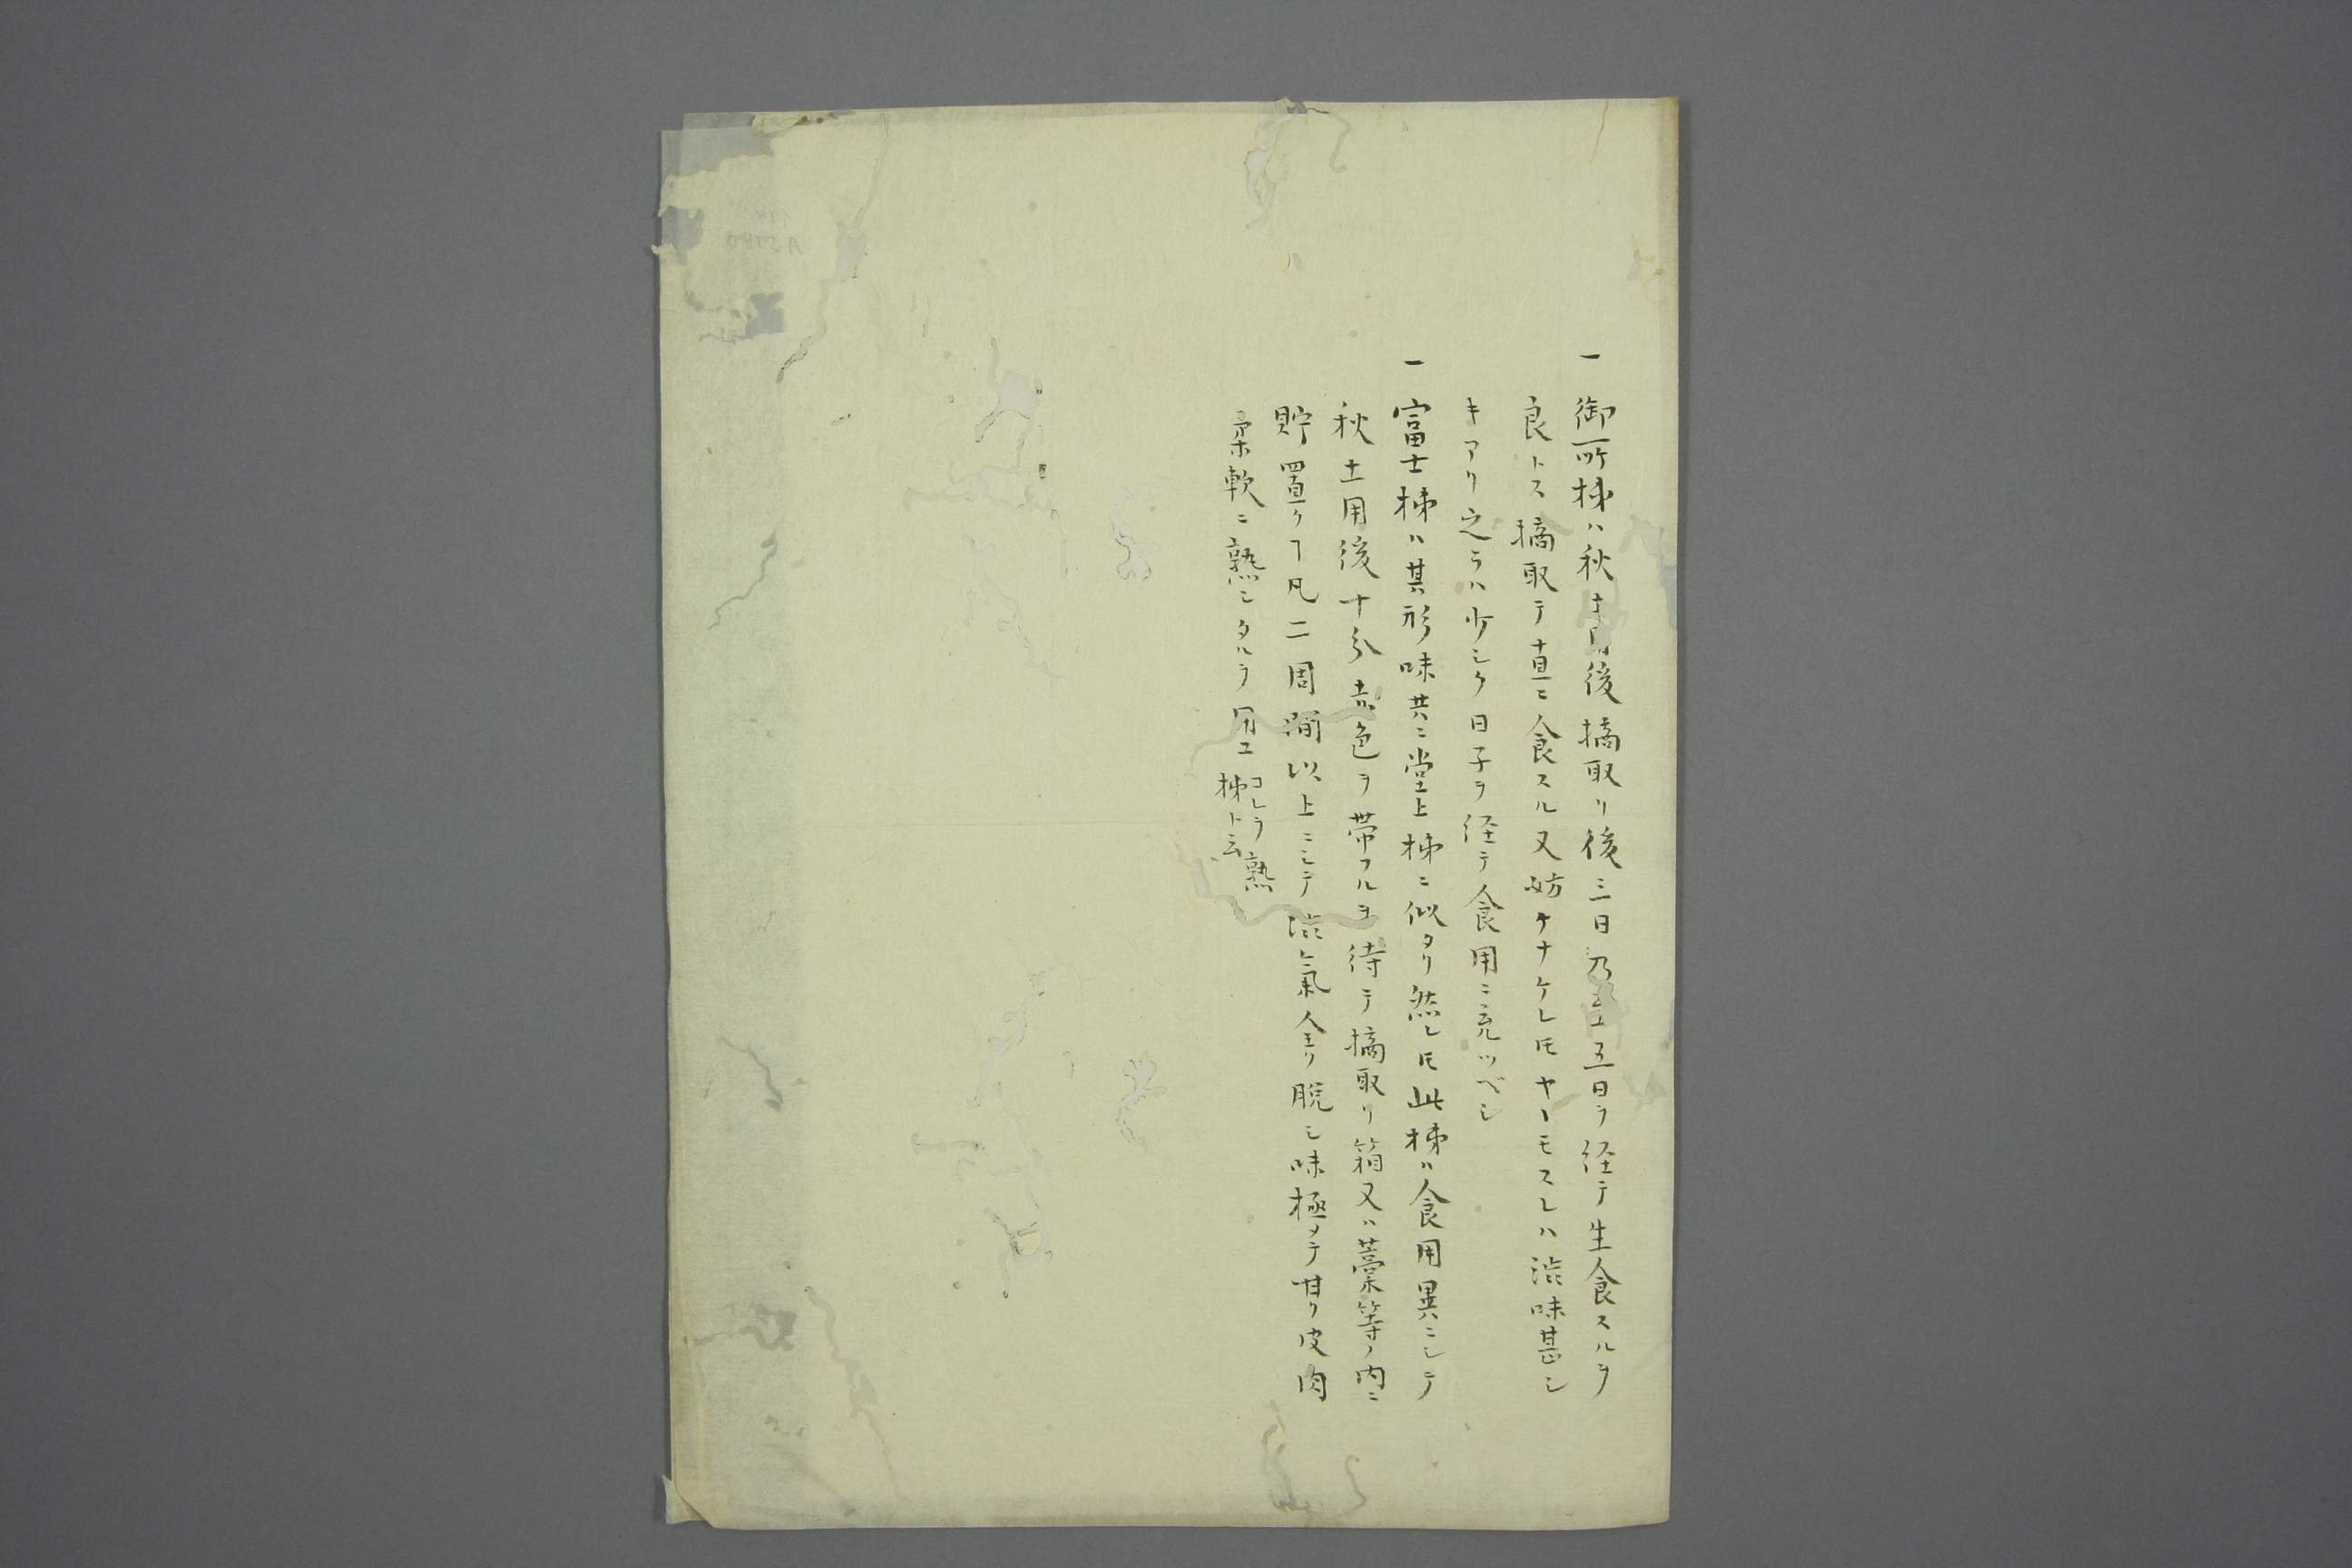 一 御所柹ハ秋土用後摘取リ後三日乃至五日ヲ経テ生食スルヲ
良トス摘取テ直ニ食スル又妨ケナケレ𪜈ヤヽモスレハ渋味甚シ
キアリ之ヲハ少シク日子ヲ経テ食用ニ充ツベシ
一 富士柹ハ其形味共ニ堂上柹ニ似タリ然レ𪜈此柹ハ食用異ニシテ
秋土用後十分赤色ヲ帯フルヲ待テ摘取リ箱又ハ藁等ノ内ニ
貯置クヿ凡二周間以上ニシテ渋氣全ク脱シ味極メテ甘ク皮肉
柔軟ニ熟シタルヲ用ユ コレヲ熟
柹ト云